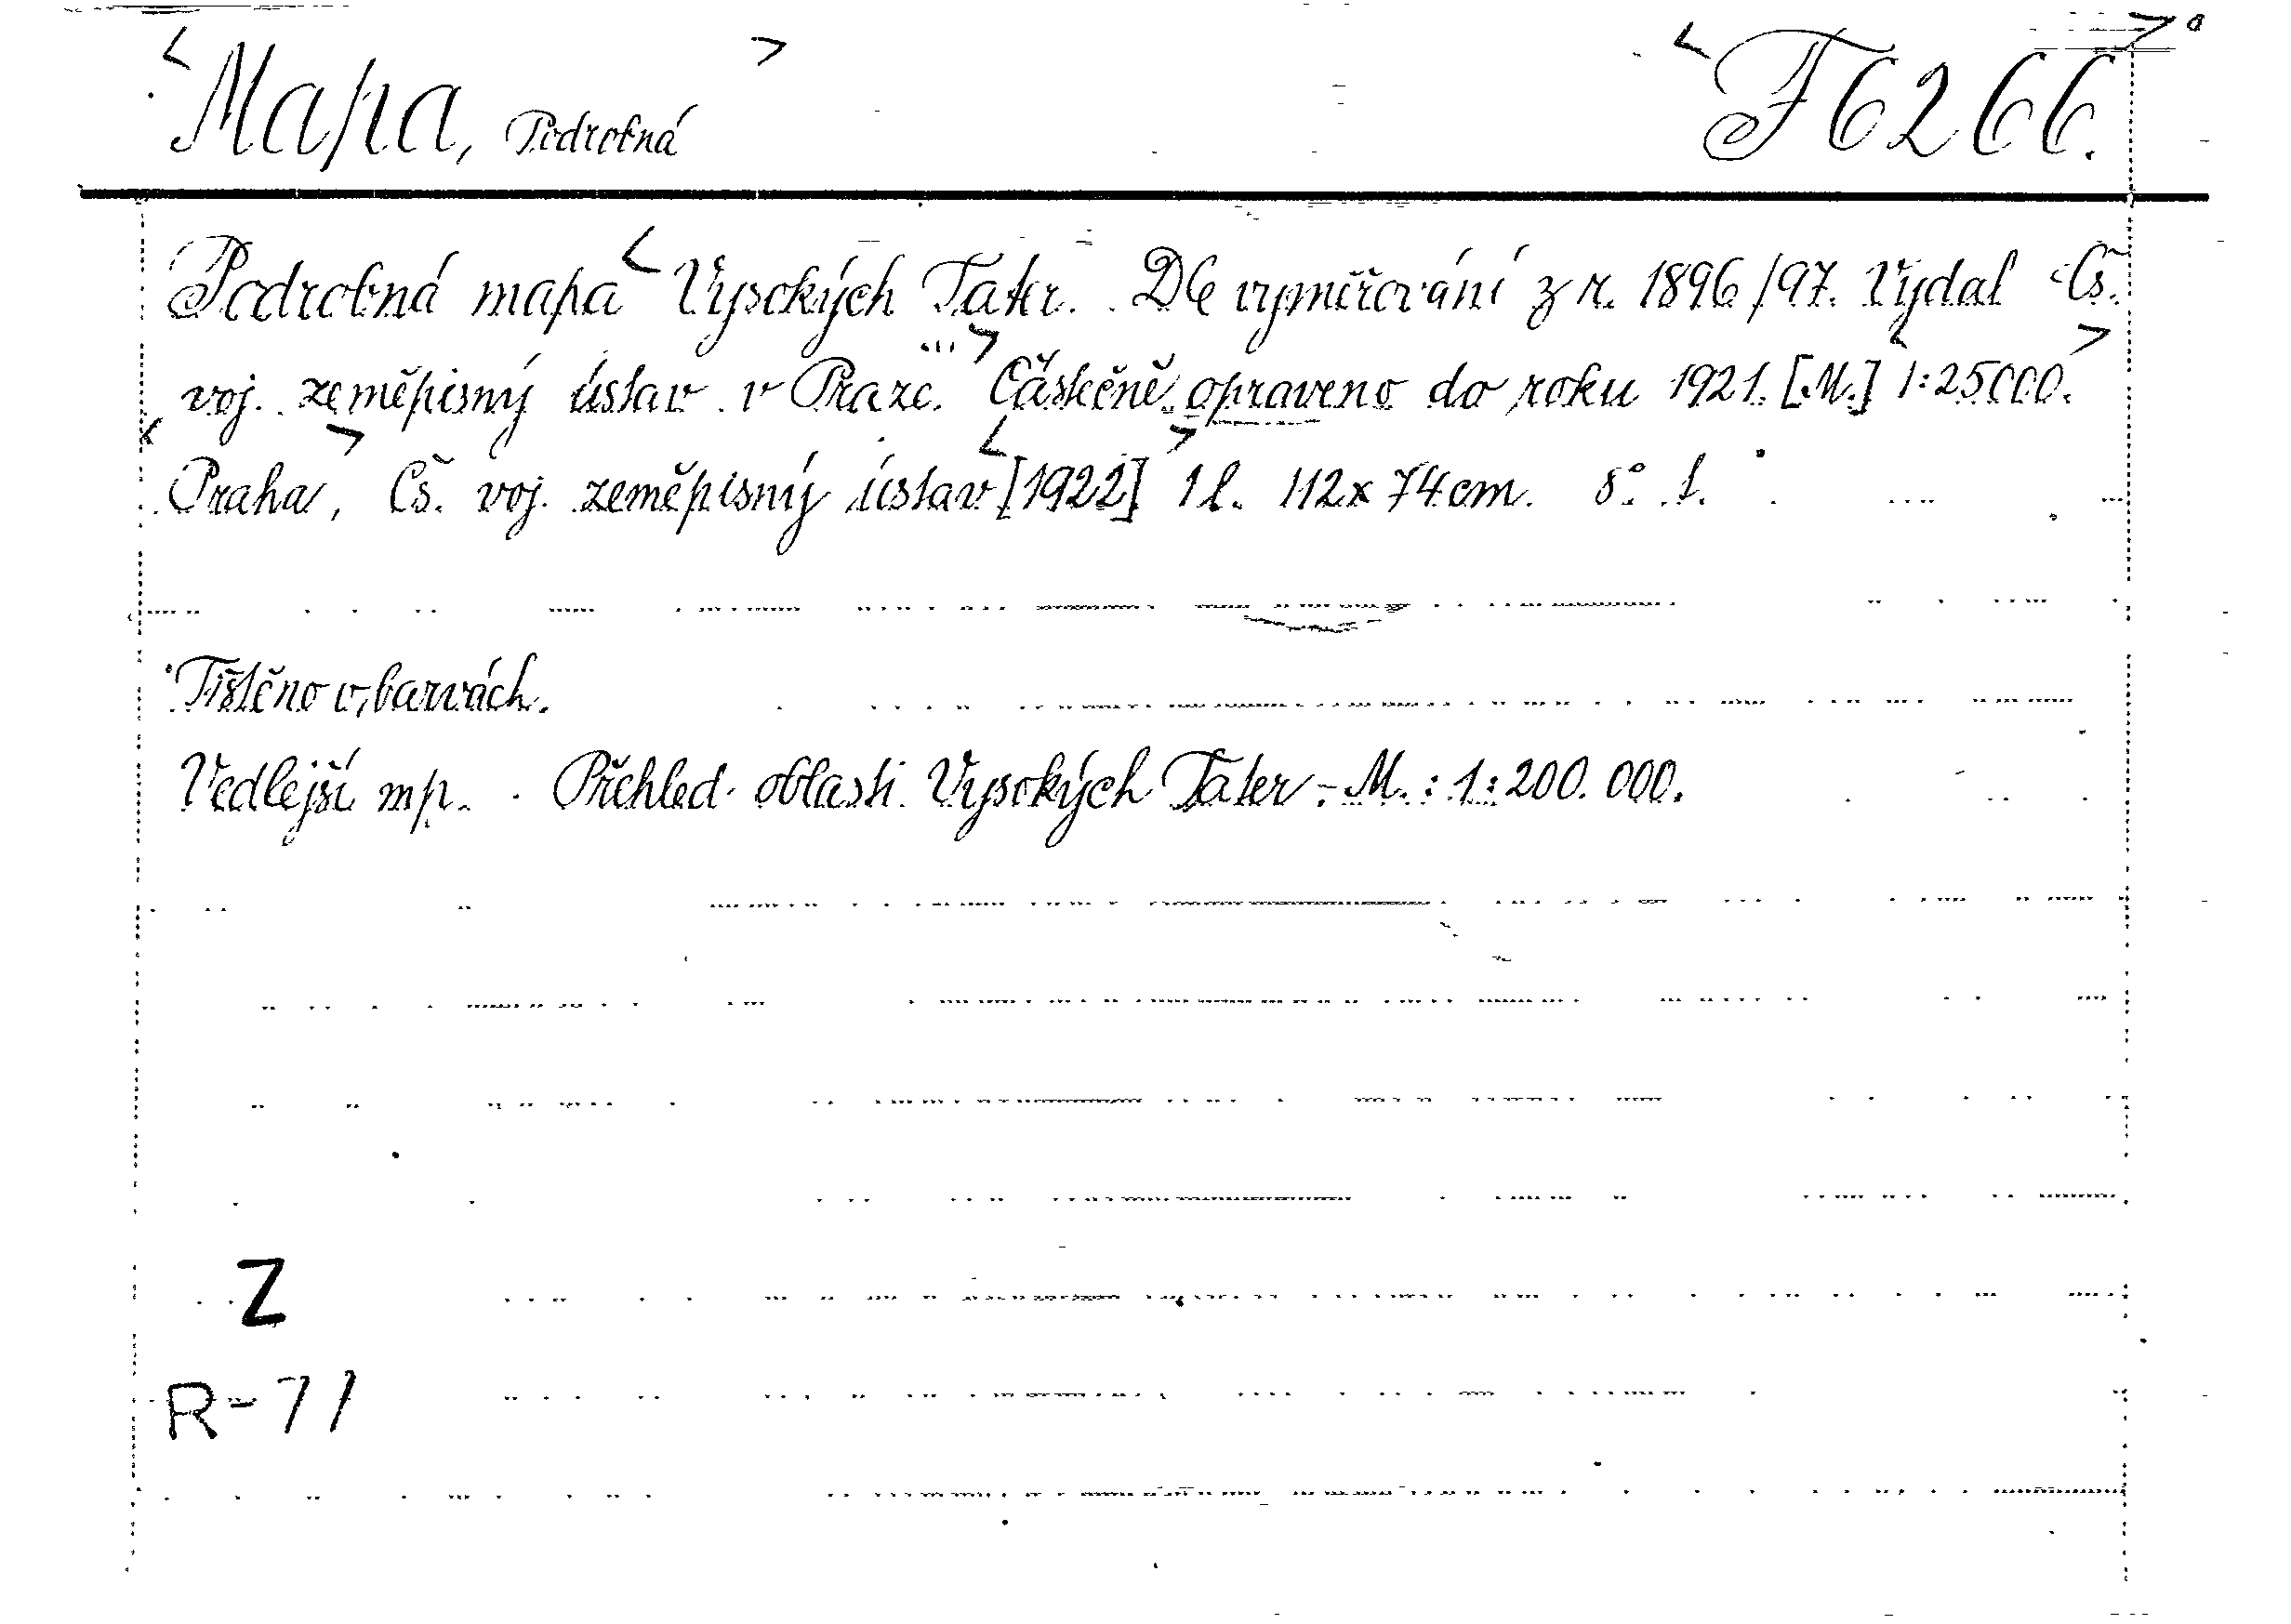 Mapa, Podrobná F 6266.
Podrobná mapa Vysokých Tater. Dle vyměřování z r. 1896/97. Vydal Čs.
voj. zeměpisný ústav v Praze. Částečně opraveno do roku 1921. [M.] 1:25000.
Praha, Čs. voj. zeměpisný ústav [1922] 1 l. 112x74cm. 8°. 1.
Tištěno v barvách.
Vedlejší mp. Přehled oblasti Vysokých Tater. - M.: 1:200.000.
Z
R-71